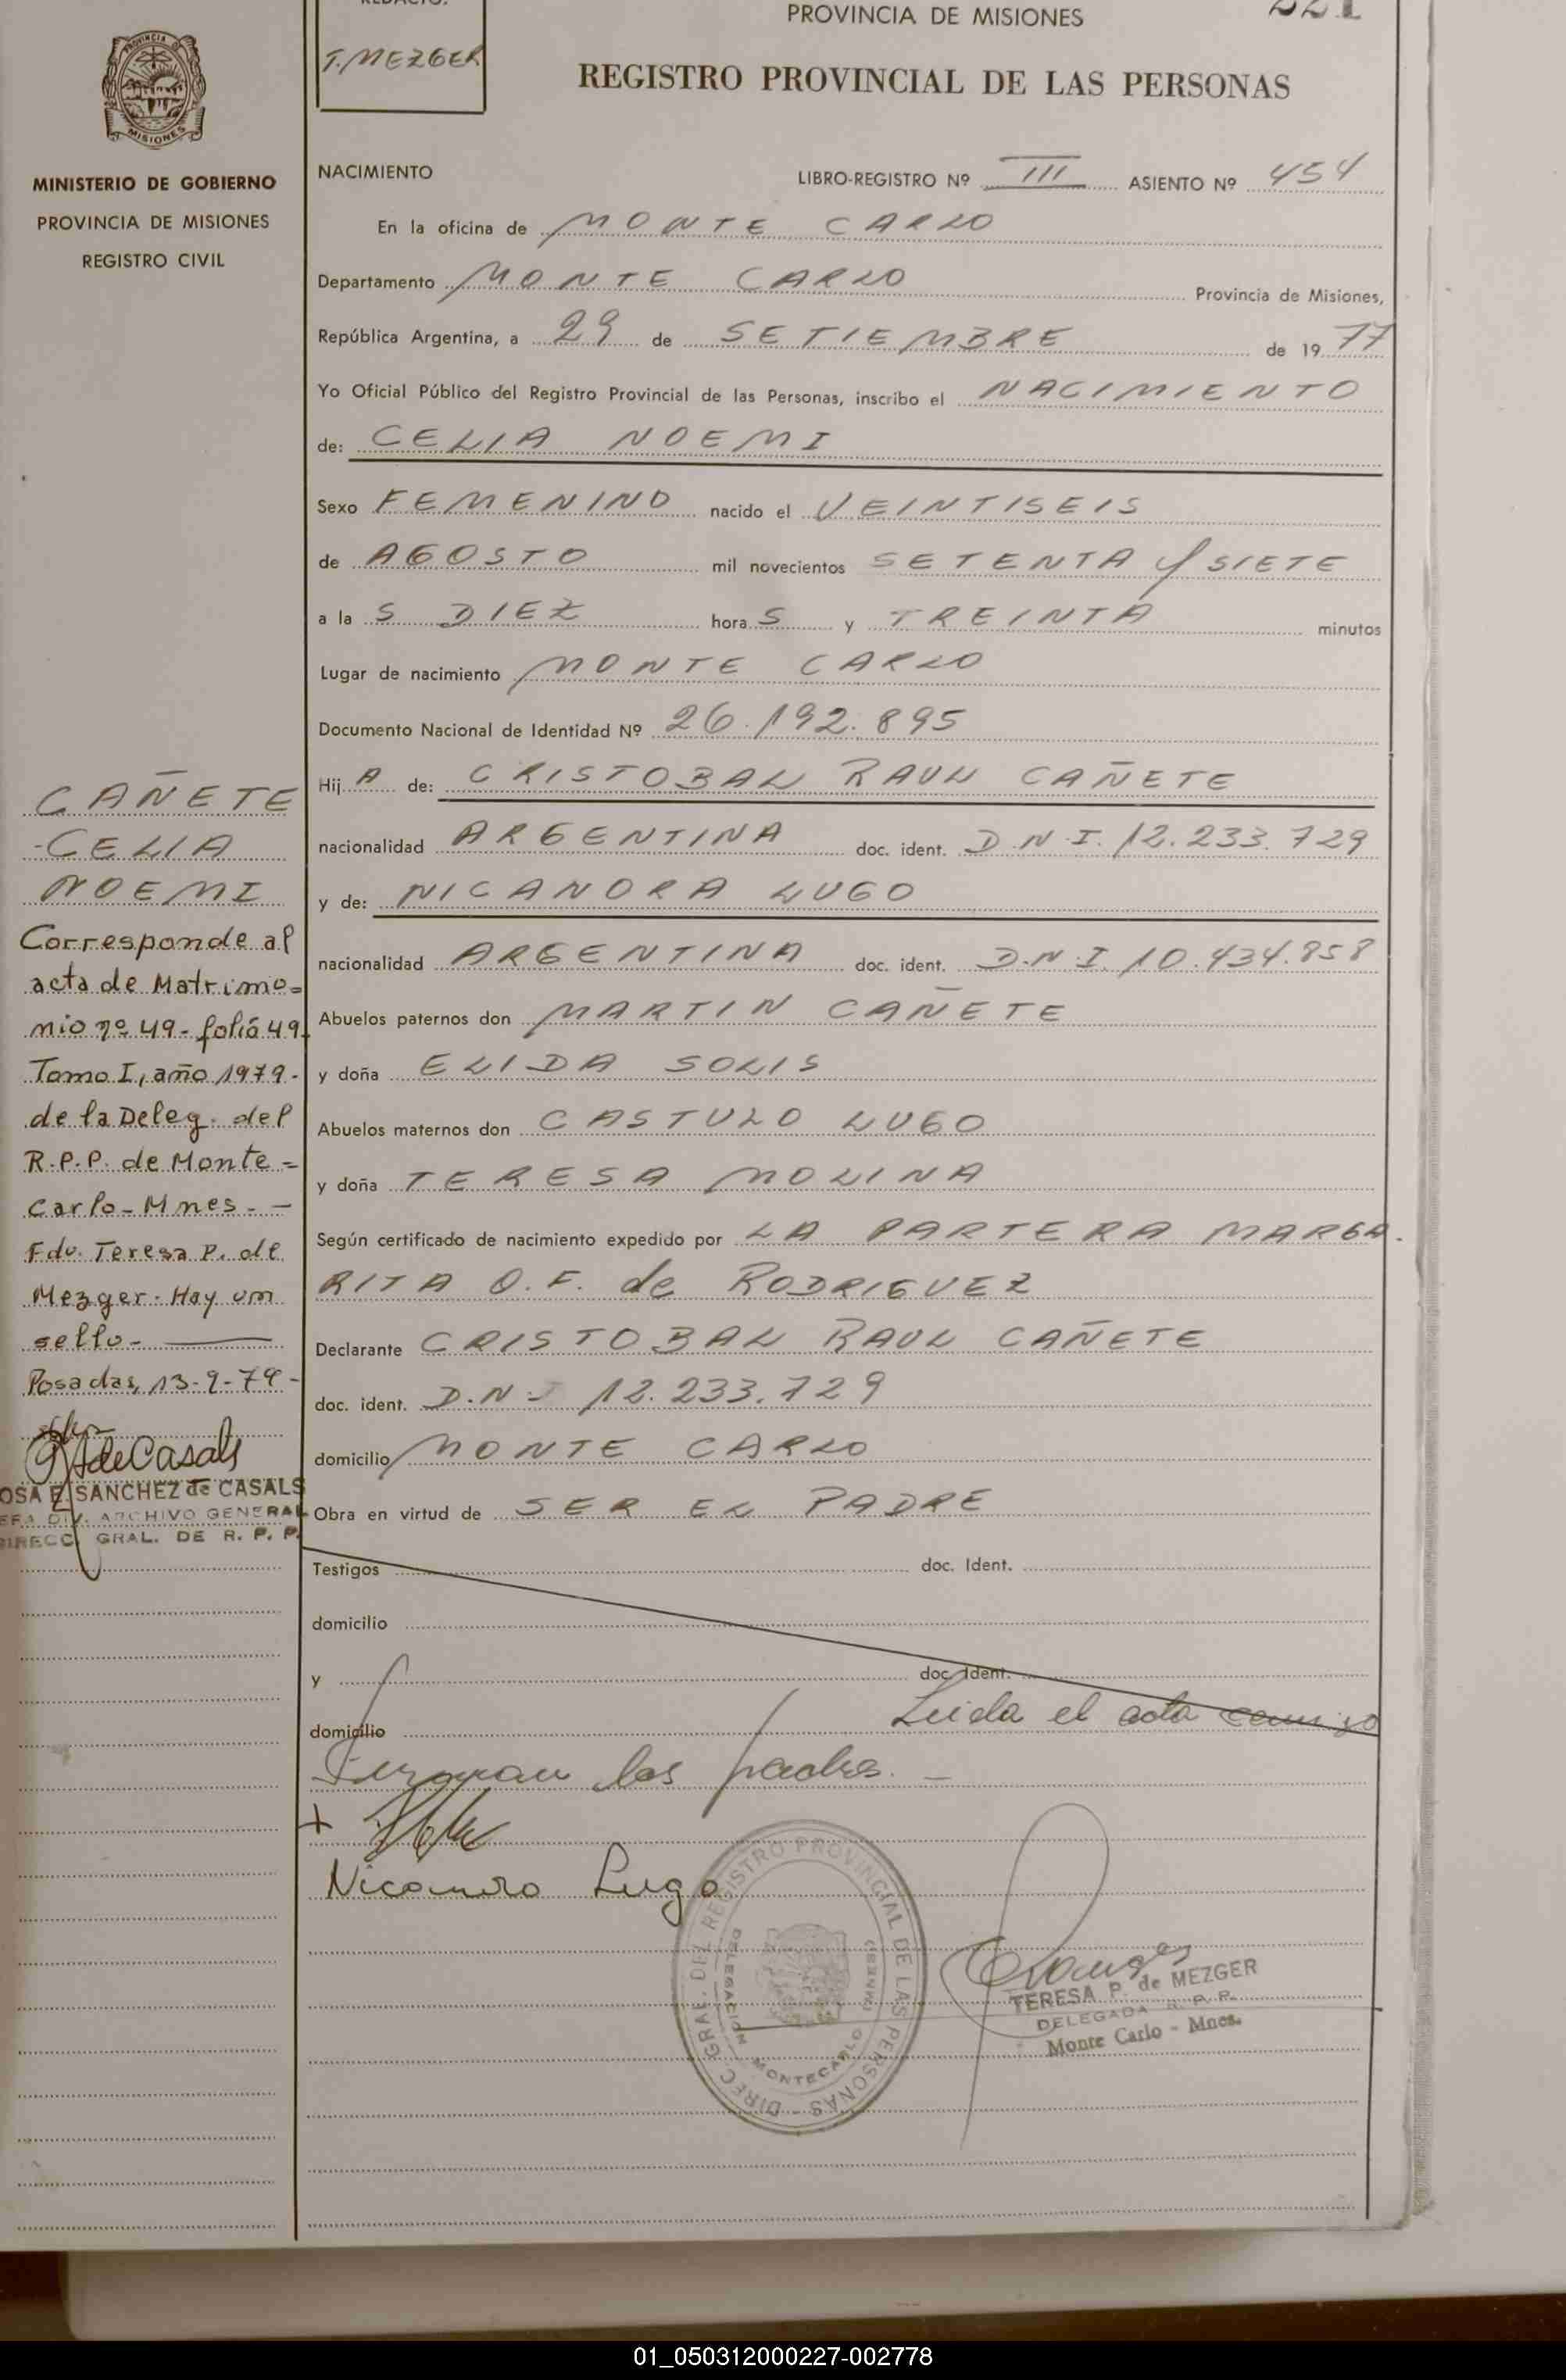 PROVINCIA DE MISIONES
221
T. MEZGER
REGISTRO PROVINCIAL DE LAS PERSONAS
PROVINCIA DE
MISIONES
MINISTERIO DE GOBIERNO
PROVINCIA DE MISIONES
REGISTRO CIVIL
NACIMIENTO
LIBRO-REGISTRO Nº III ASIENTO Nº 454
En la oficina de MONTE CARLO
Departamento MONTE CARLO Provincia de Misiones,
República Argentina, a 29 de SETIEMBRE de 1977
Yo Oficial Público del Registro Provincial de las Personas, inscribo el NACIMIENTO
de: CELIA NOEMI
Sexo FEMENINO nacido el VEINTISEIS
de AGOSTO mil novecientos SETENTA y SIETE
a la S DIEZ hora S y TREINTA minutos
Lugar de nacimiento MONTE CARLO
Documento Nacional de Identidad Nº 26.192.895
Hij A de: CRISTOBAL RAUL CAÑETE
nacionalidad ARGENTINA doc. ident. D.N.I. 12.233.729
y de: NICANORA LUGO
nacionalidad ARGENTINA doc. ident. D.N.I. 10.434.858
Abuelos paternos don MARTIN CAÑETE
y doña ELIDA SOLIS
Abuelos maternos don CASTULO LUGO
y doña TERESA MOLINA
Según certificado de nacimiento expedido por LA PARTERA MARGA
RITA O.F. de RODRIGUEZ
Declarante CRISTOBAL RAUL CAÑETE
doc. ident. D.N.I 12.233.729
domicilio MONTE CARLO
Obra en virtud de SER EL PADRE
Testigos doc. Ident.
domicilio
y doc. Ident.
domicilio Leida el acta
Firman los padres. -
Nicanora Lugo
CAÑETE
-CELIA
NOEMI
Corresponde al
acta de Matrimo-
nio nº 49- folio 49
Tomo I, año 1979-
de la Deleg. del
R.P.P. de Monte-
carlo- Mnes. -
Fdo. Teresa P. de
Mezger- Hay un
sello-
Posadas, 13-9-79-
deCasals
OSA E. SANCHEZ de CASALS
EFA DIV. ARCHIVO GENERAL
DIRECC. GRAL. DE R. P. P.
DIREC. GRAL. DEL REGISTRO PROVINCIAL DE LAS PERSONAS
DELEGACION MONTECARLO (MNES)
TERESA P. de MEZGER
DELEGADA R. P. P.
Monte Carlo - Mnes.
01_050312000227-002778